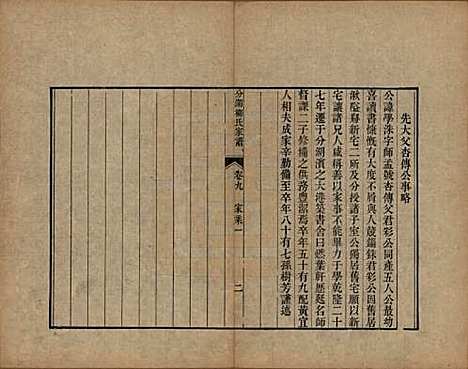 先大父杏傳公事略
公諱學洙字師孟號杏傳父君彩公同產五人公最幼
喜讀書慷慨有大度不屑與人競錙銖君彩公因舊居
湫隘築新宅二所及分授諸子室公獨居舊宅願以新
宅讓諸兄人咸稱善以家事不能畢力于學乾隆二十
七年遷于分湖濱之大港築書舍曰慿葉軒歷延名師
督課二子脩補之供務豐潔焉卒年五十有九配黃宜
人相夫成家辛勤備至卒年八十有七孫樹芳謹述
分湖柳氏家譜 卷九 家乘一 二